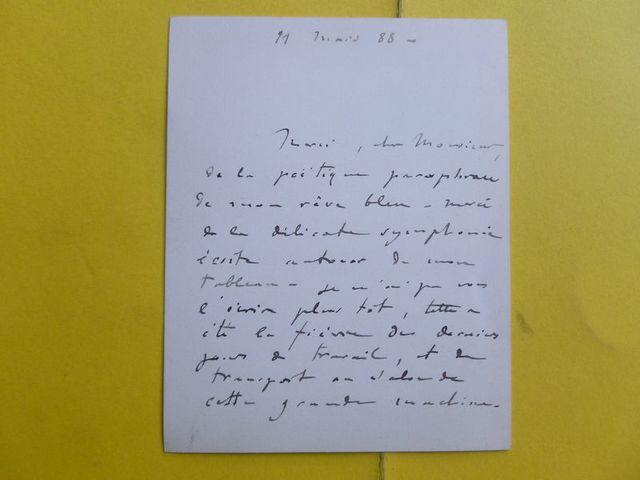 mars 88 -
Merci, cher Monsieur,
de la poétique paraphrase
de mon rêve bleu - merci
de la délicate symphonie
écrite autour de mon
tableau - je n'ai pu vous
l'écrire plus tôt, telle a
été la fièvre des derniers
jours de travail, et du
transport au de
cette grande machine.